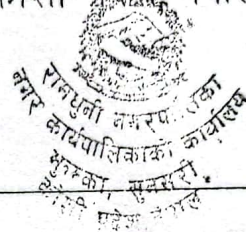 रामधुनी नगरपालिका
नगर कार्यपालिकाको कार्यालय
भुल्का, सुनसरी
प्रदेश